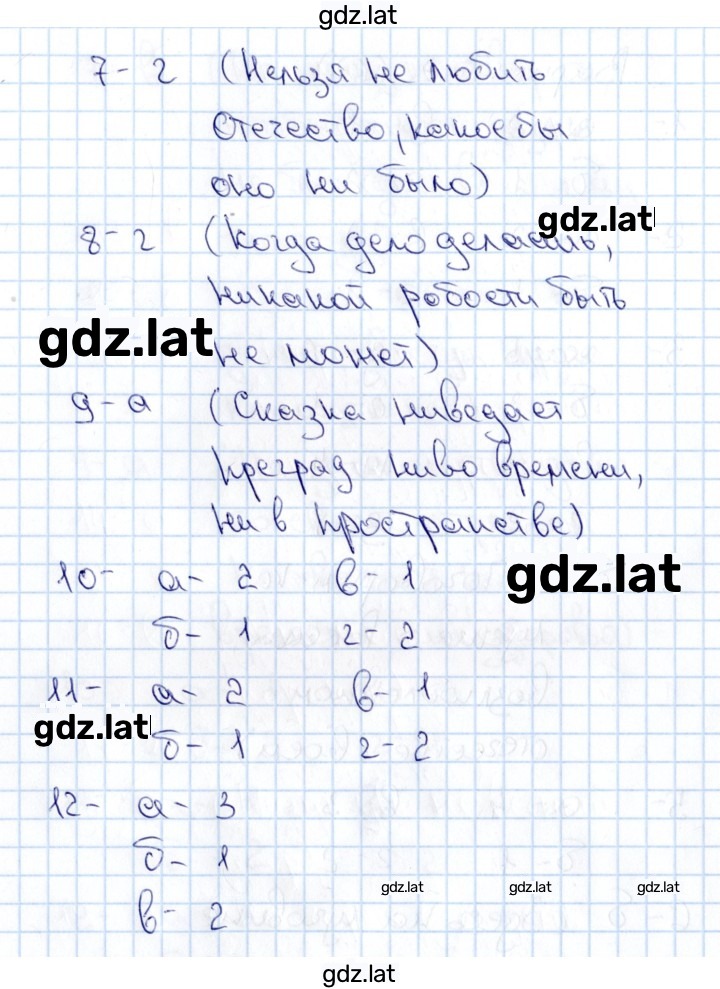 gdz.lat
7- г (Нельзя не любить
Отечество, какое бы
оно ни было)
gdz.lat
8- г (Когда дело делаешь,
никакой робости быть
gdz.lat
не может)
9- а (Сказка ниведает
преград ниво времени,
ни в пространстве)
gdz.lat
10- а- 2 в- 1
б- 1 г- 2
11- а- 2 в- 1
gdz.lat
б- 1 г- 2
12- а- 3
б- 1
gdz.lat gdz.lat gdz.lat
в- 2
gdz.lat